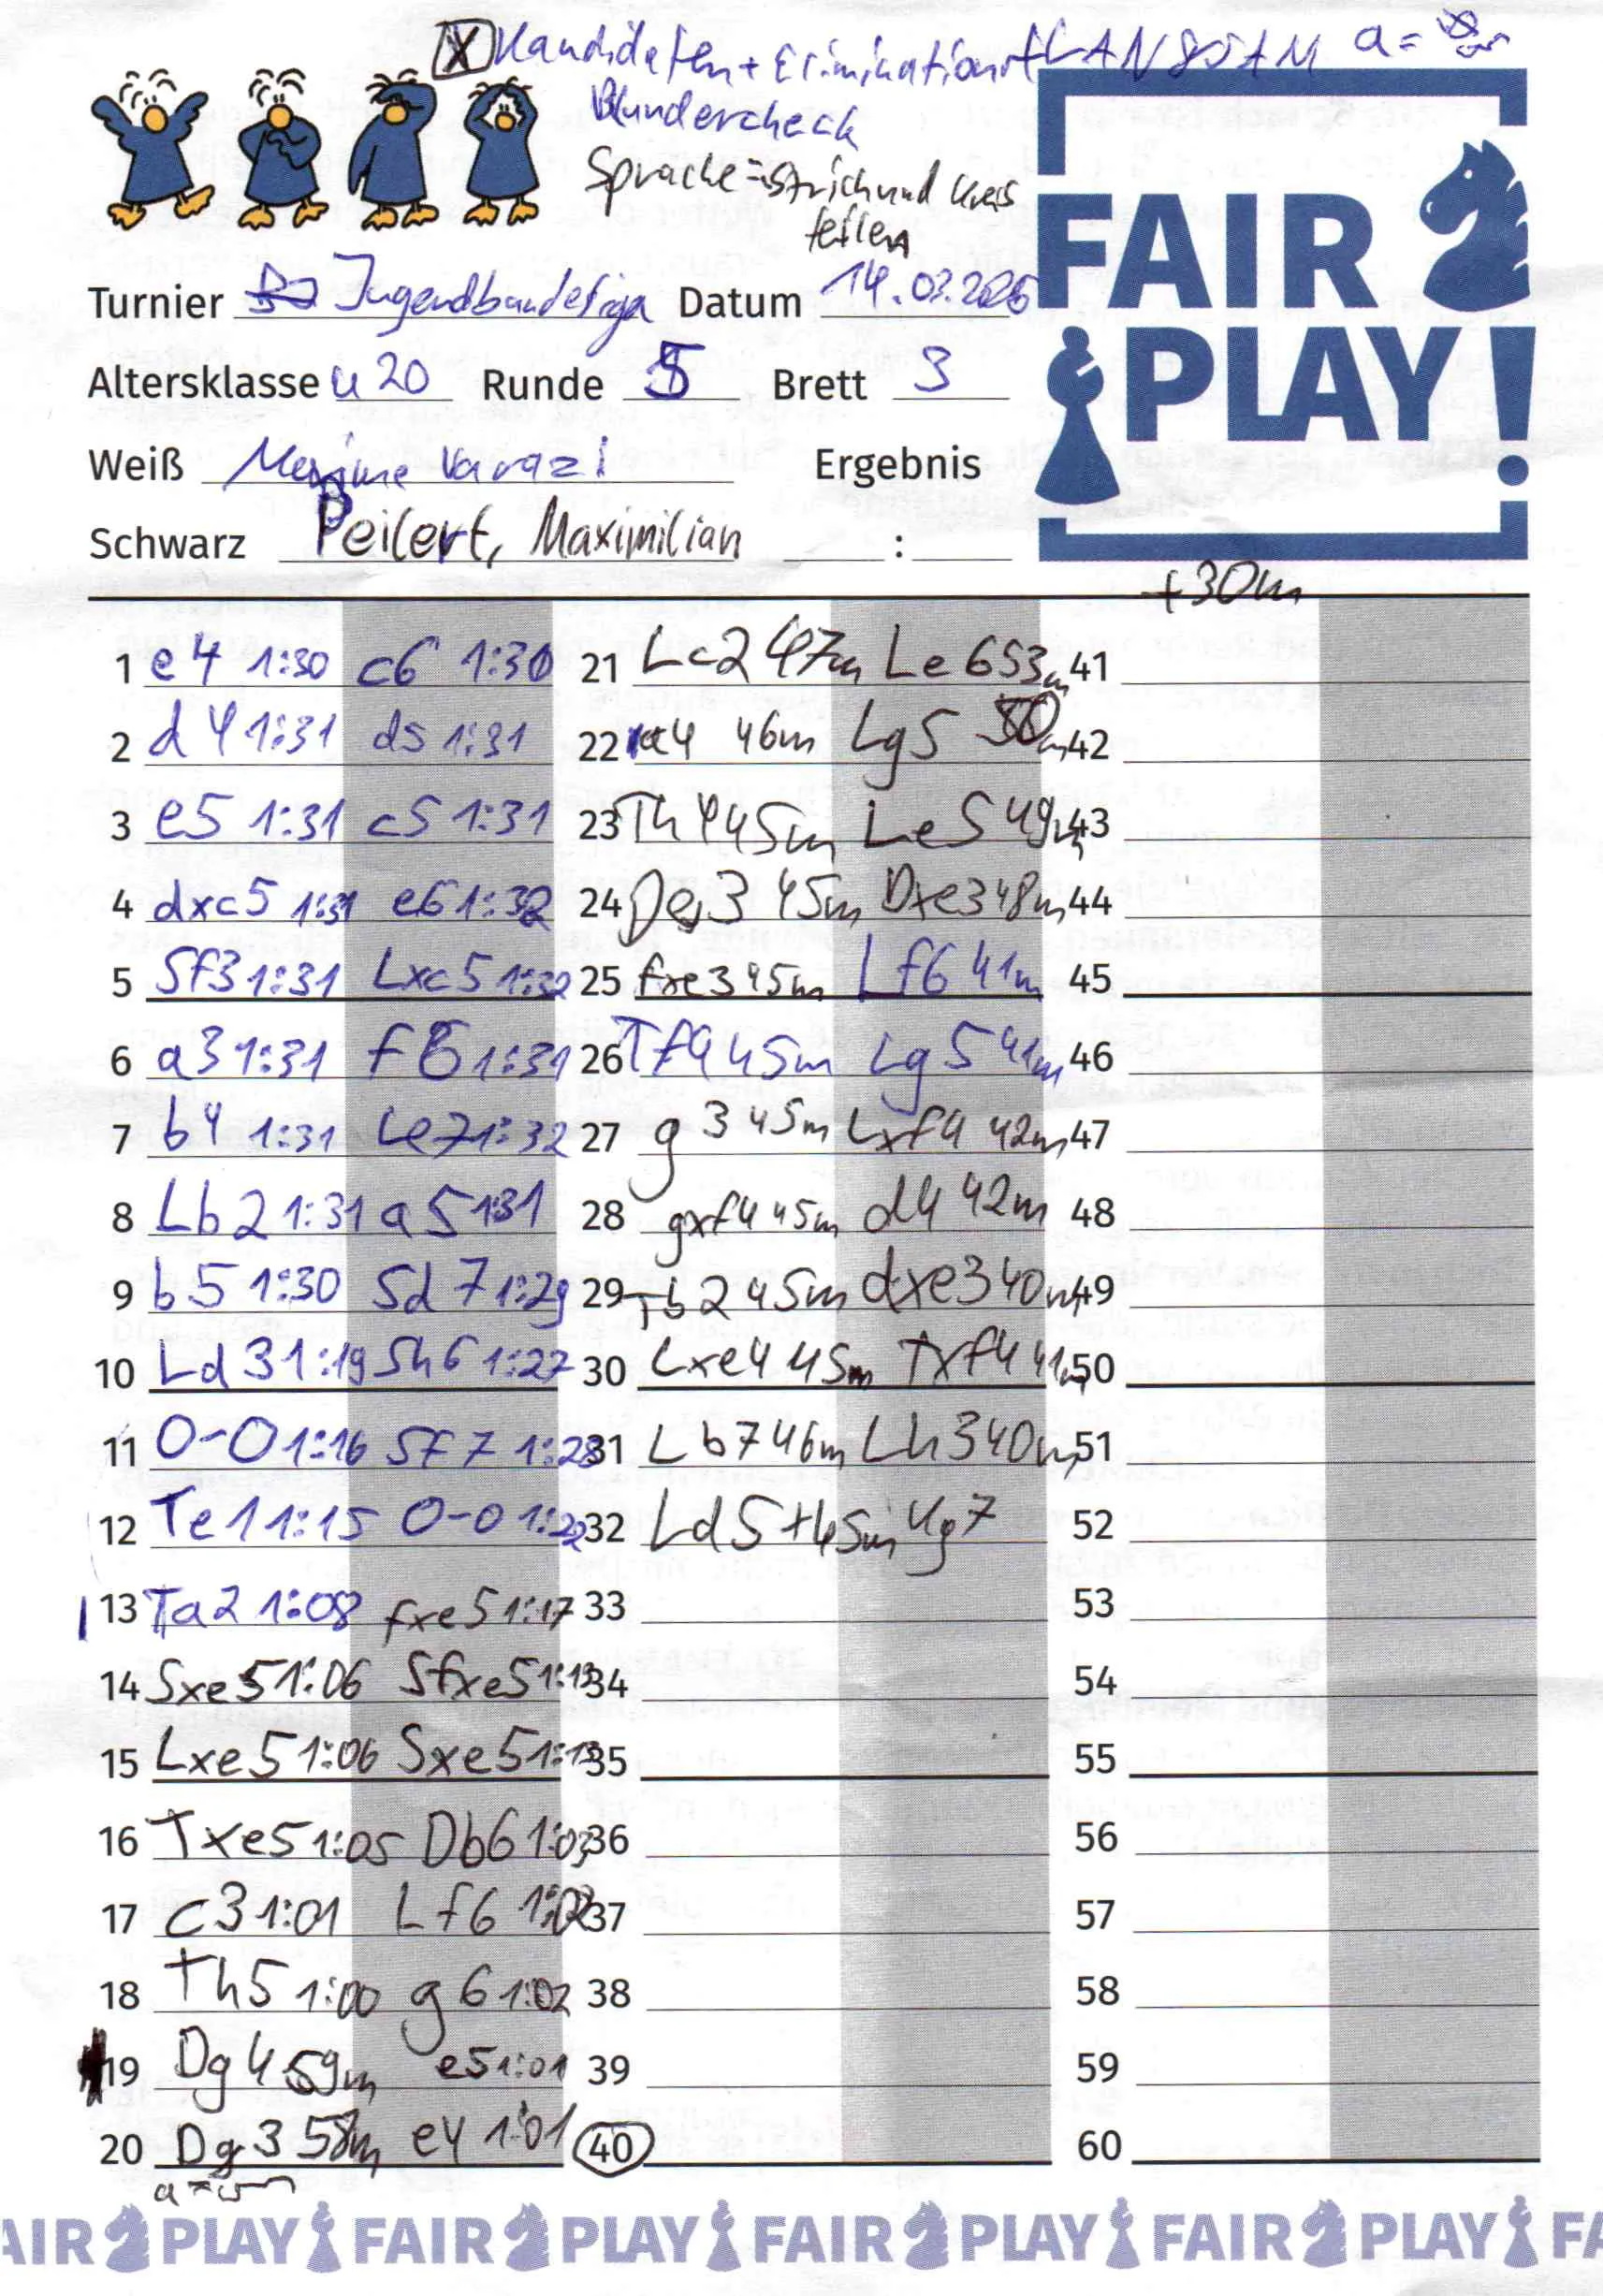 X Kandidaten + Elimination + LANGSAM a =
Blundercheck
Sprache = Strich und Kreis
teilen
FAIR
PLAY!
Turnier Jugendbundesliga Datum 14.03.2026
Altersklasse u20 Runde 5 Brett 3
Weiß Maxime Varazi Ergebnis
Schwarz Peilert, Maximilian :
+30m
1 e4 1:30 c6 1:30
2 d4 1:31 d5 1:31
3 e5 1:31 c5 1:31
4 dxc5 1:31 e6 1:32
5 Sf3 1:31 Lxc5 1:32
6 a3 1:31 f6 1:31
7 b4 1:31 Le7 1:32
8 Lb2 1:31 a5 1:31
9 b5 1:30 Sd7 1:29
10 Ld3 1:19 Sh6 1:27
11 0-0 1:16 Sf7 1:28
12 Te1 1:15 0-0 1:22
13 Ta2 1:08 fxe5 1:17
14 Sxe5 1:06 Sfxe5 1:13
15 Lxe5 1:06 Sxe5 1:13
16 Txe5 1:05 Db6 1:03
17 c3 1:01 Lf6 1:02
18 Th5 1:00 g6 1:02
19 Dg4 59m e5 1:01
20 Dg3 58m e4 1:01
21 Lc2 47m Le6 53m
22 a4 46m Lg5 50m
23 Th4 45m Le5 49m
24 De3 45m Dxe3 48m
25 fxe3 45m Lf6 41m
26 Tf4 45m Lg5 41m
27 g3 45m Lxf4 42m
28 gxf4 45m d4 42m
29 Tb2 45m dxe3 40m
30 Lxe4 45m Txf4 41m
31 Lb7 46m Lh3 40m
32 Ld5+ 45m Kg7
33
34
35
36
37
38
39
40
41
42
43
44
45
46
47
48
49
50
51
52
53
54
55
56
57
58
59
60
AIR PLAY FAIR PLAY FAIR PLAY FAIR PLAY FA